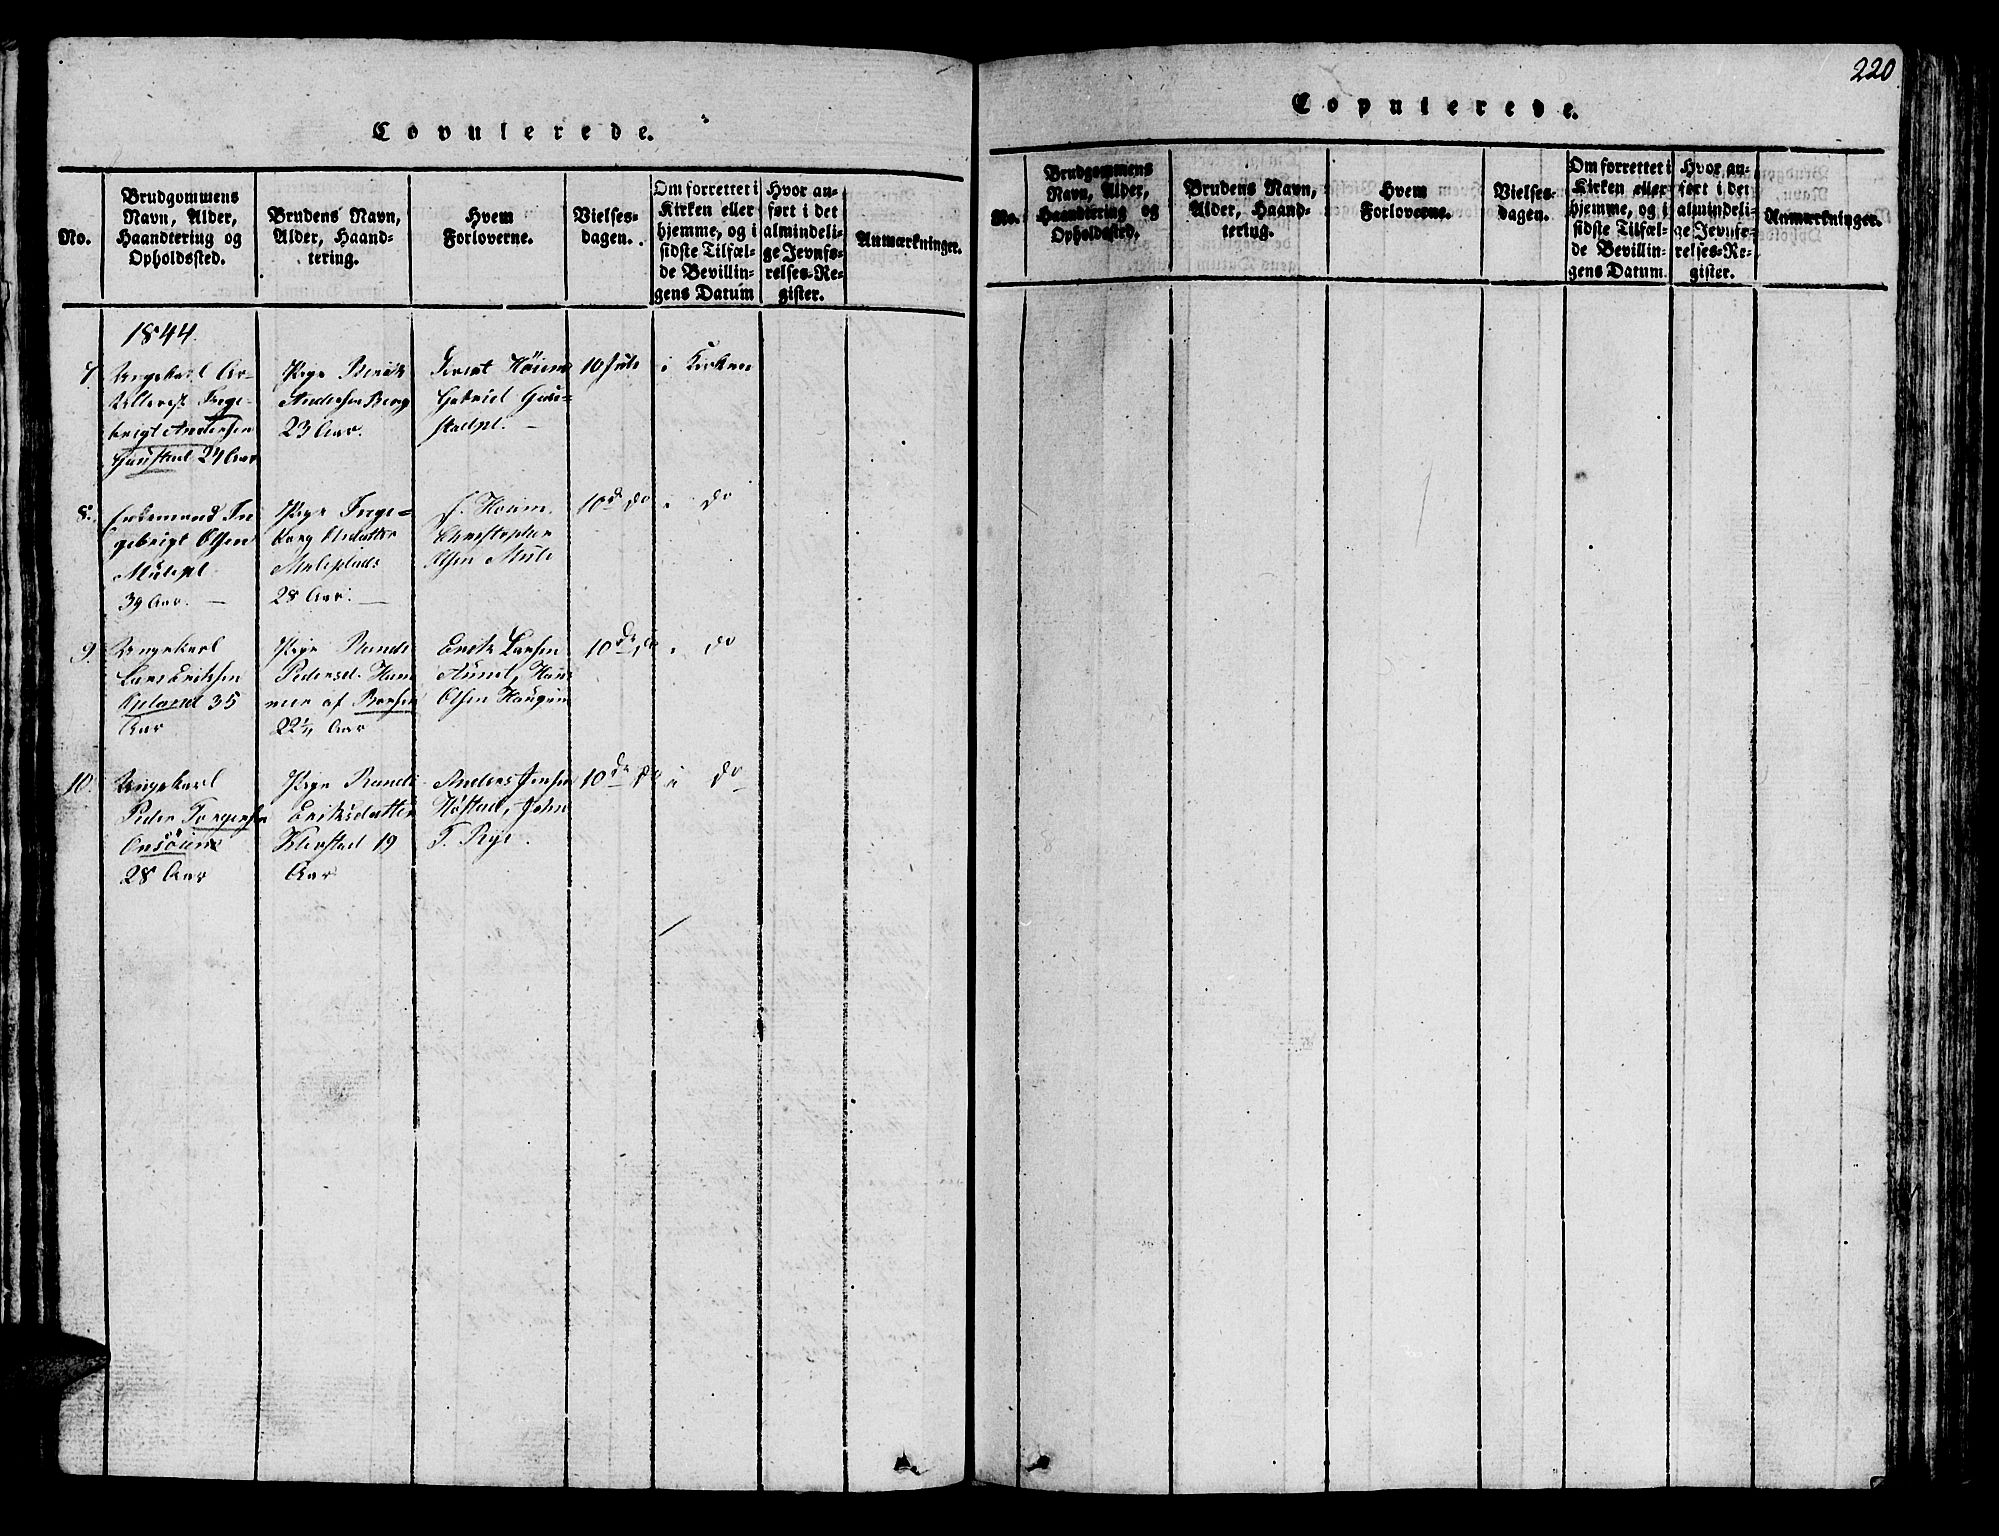 Copulerede.
No.
Brudgommens
Navn, Alder,
Haandtering og
Opholdssted.
Brudens Navn,
Alder, Haand-
tering.
Hvem
Forloverne.
Vielses-
dagen.
Om forrettet i
Kirken eller
hjemme, og i
sidste Tilfæl-
de Bevillin-
gens Datum
Hvor an-
ført i det
almindeli-
ge Jevnfø-
relses-Re-
gister.
Anmærkninger.
1844.
7.
Ungekarl
Inge-
brigt Andersen
Gaustad 24 Aar
Pige Beret
Andersen Berg
23 Aar.
Høiem
Gabriel Gau-
stadpl.
10 Jule
i Kirken
8.
Enkemand In-
gebrigt Olsen
Mulepl
39 Aar.
Pige Inge-
borg
Muleplads
28 Aar.
Hoiem
Christopher
Olsen Mule
10de do
i do
9.
Ungekarl
Lars Eriksen
35
Aar
Pige Randi
Pedersd. Ham
mer af Børsen
22½ Aar
Erik Larsen
Aunet, Hans
Olsen Haugum
10de do
i do
10.
Ungekarl
Peder Torgersen
Onsøien
28 Aar
Pige Randi
Eriksdatter
Klevstad 19
Aar
Anders Jensen
Høstad, John
T. Rye.
10de do
i do
220
Copulerede.
No.
Brudgommens
Navn, Alder,
Haandtering og
Opholdssted.
Brudens Navn,
Alder, Haand-
tering.
Hvem
Forloverne.
Vielses-
dagen.
Om forrettet i
Kirken eller
hjemme, og i
sidste Tilfæl-
de Bevillin-
gens Datum
Hvor an-
ført i det
almindeli-
ge Jevnfø-
relses-Re-
gister.
Anmærkninger.